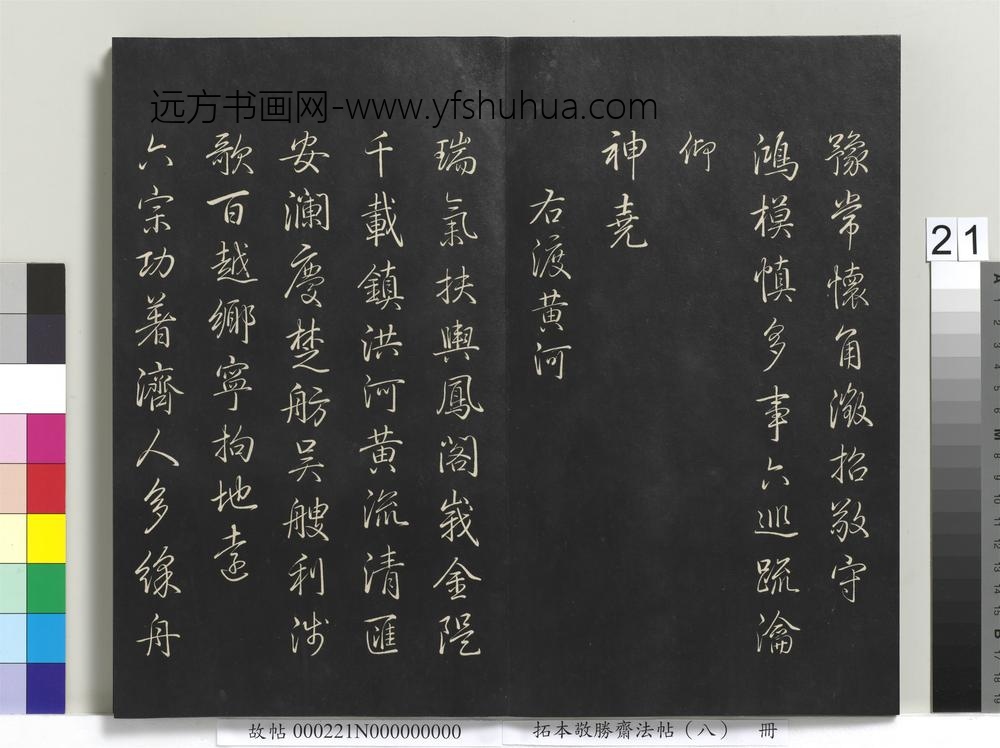 远方书画网-www.yfshuhua.com
豫常懷角澂招敬守
鴻模慎多事六巡疏瀹
仰
神堯
右渡黃河
瑞氣扶輿鳳閣峩金隄
千載鎮洪河黃流清匯
安瀾慶楚舫吳艘利涉
歌百越鄉寧拘地遠
六宗功著濟人多綵舟
21
故帖 000221N000000000
拓本敬勝齋法帖（八） 冊